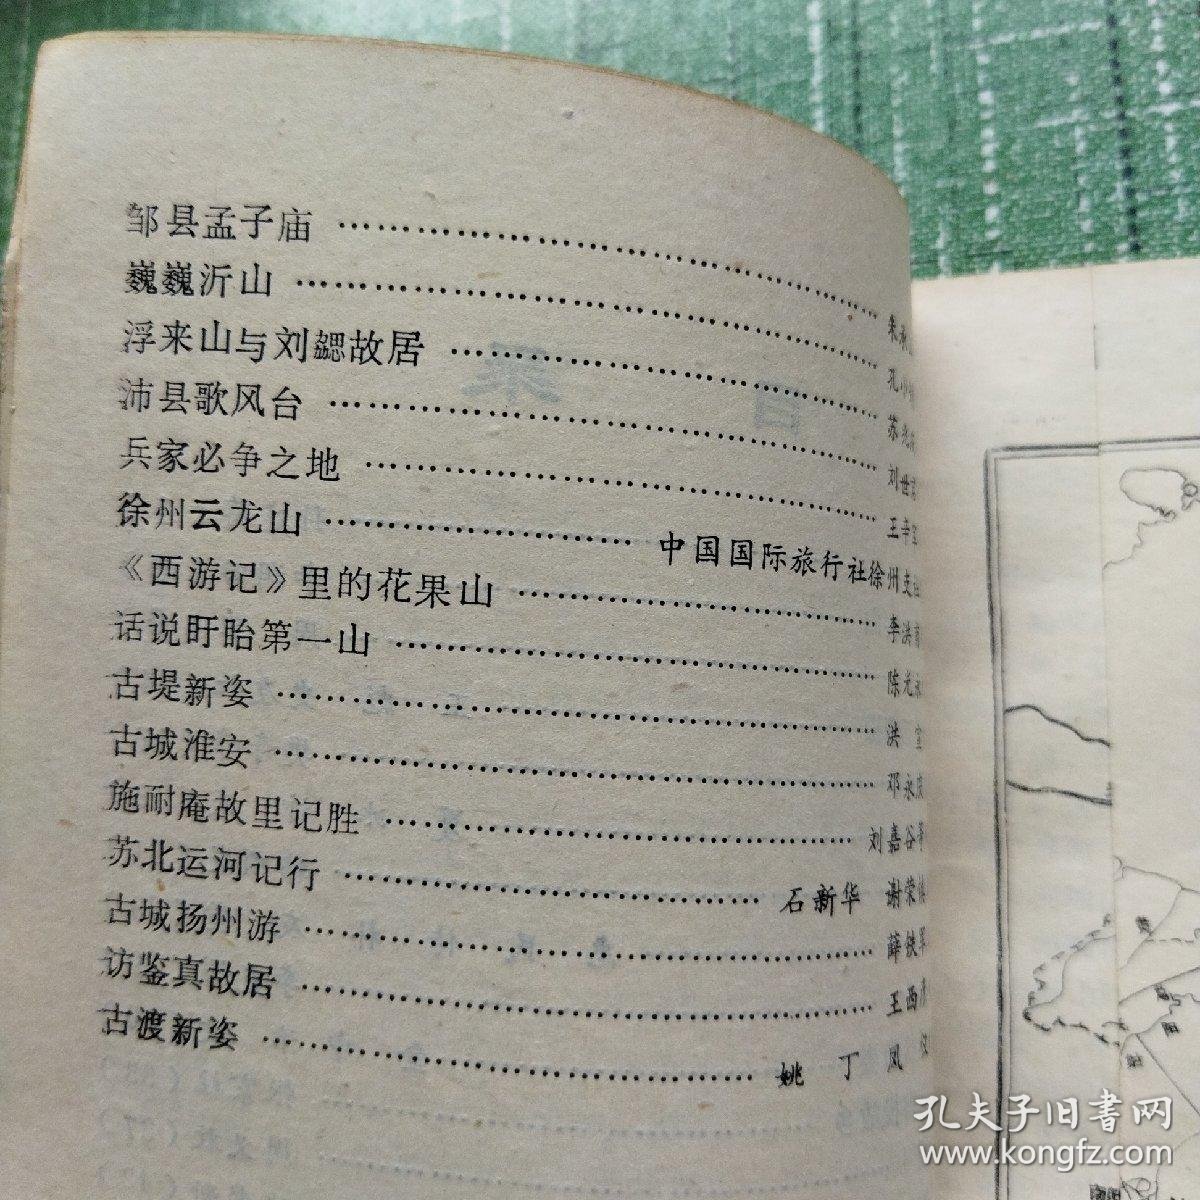 邹县孟子庙 …………………………… 朱承
巍巍沂山 …………………………… 孔小
浮来山与刘勰故居 …………………… 苏兆
沛县歌风台 …………………………… 刘世
兵家必争之地 ………………………… 王辛
徐州云龙山 ……………… 中国国际旅行社徐州支社
《西游记》里的花果山 ………………… 李洪甫
话说盱眙第一山 ……………………… 陈光
古堤新姿 …………………………… 洪宣
古城淮安 …………………………… 邓永
施耐庵故里记胜 ……………………… 刘嘉谷等
苏北运河记行 …………………… 石新华 谢荣
古城扬州游 …………………………… 薛铁军
访鉴真故居 …………………………… 王西
古渡新姿 ……………………… 姚丁凤
孔夫子旧書网
www.kongfz.com